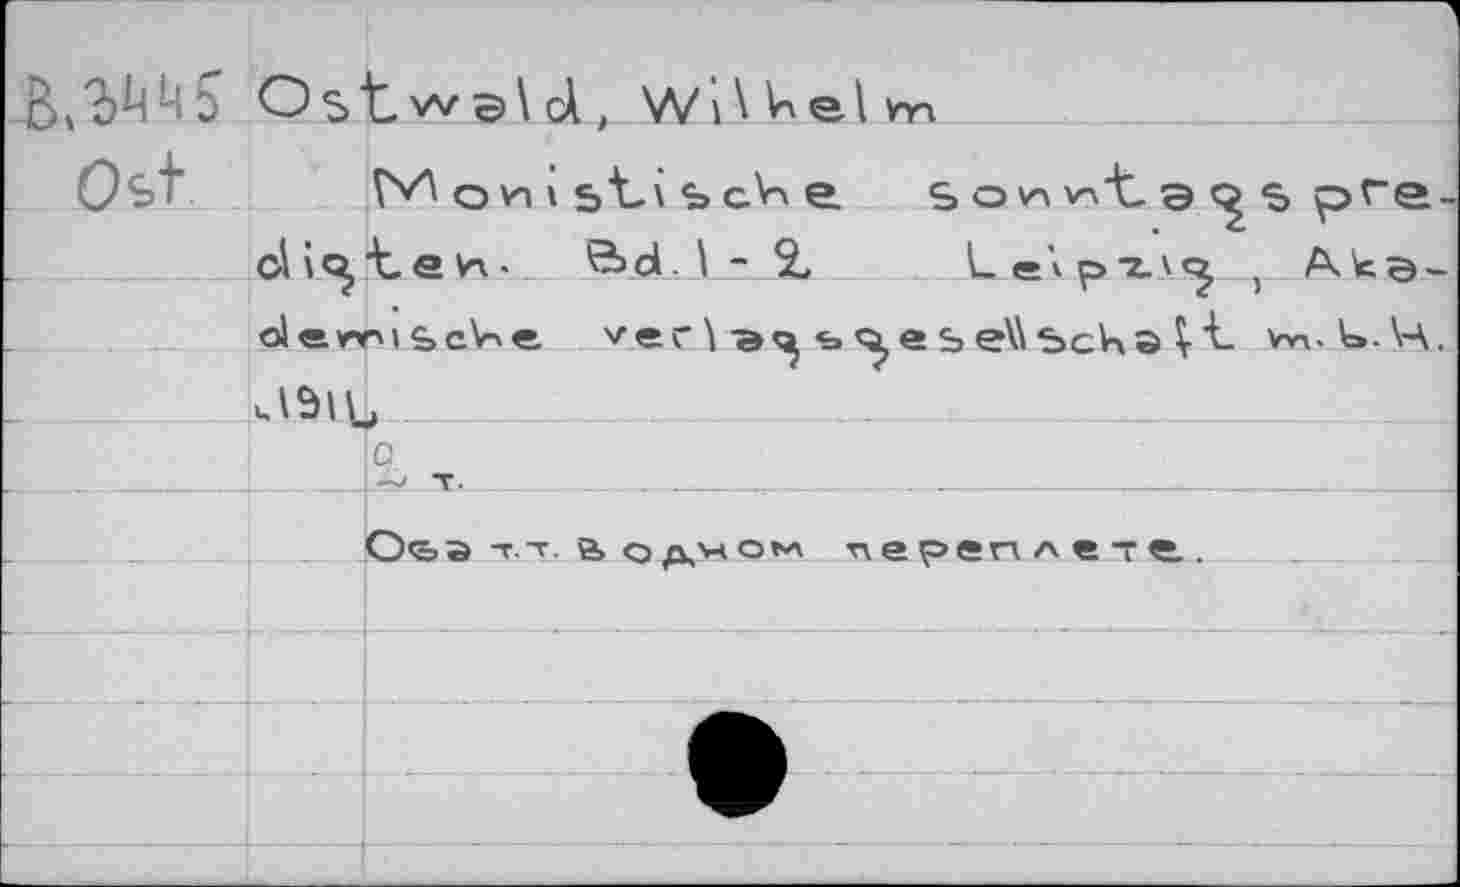 B.3445 Ostwald, Wilhelm
Ost. Monistische sonntagspre-
digten. Bd. 1-2. Leipzig, Aka-
demische verlagsgesellschaft m.b.H.,
1911,
2 т.
Оба т.т. в одном переплете.